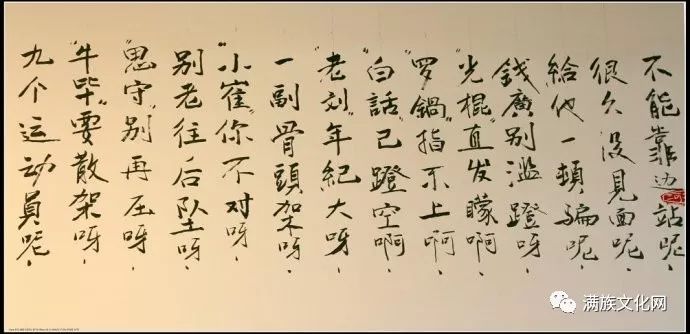 不能靠边站呢、
很久没見面呢、
給他一頓騙呢、
錢廣别滥蹬呀、
"光棍"直发矇啊、
"罗鍋"指不上啊、
"白話"已蹬空啊、
"老刘"年紀大呀、
一副骨頭架呀、
"小崔"你不对呀、
别老往后坠呀、
守"别再压呀、
"牛哞"要散架呀、
九个运动員呢、
满族文化网